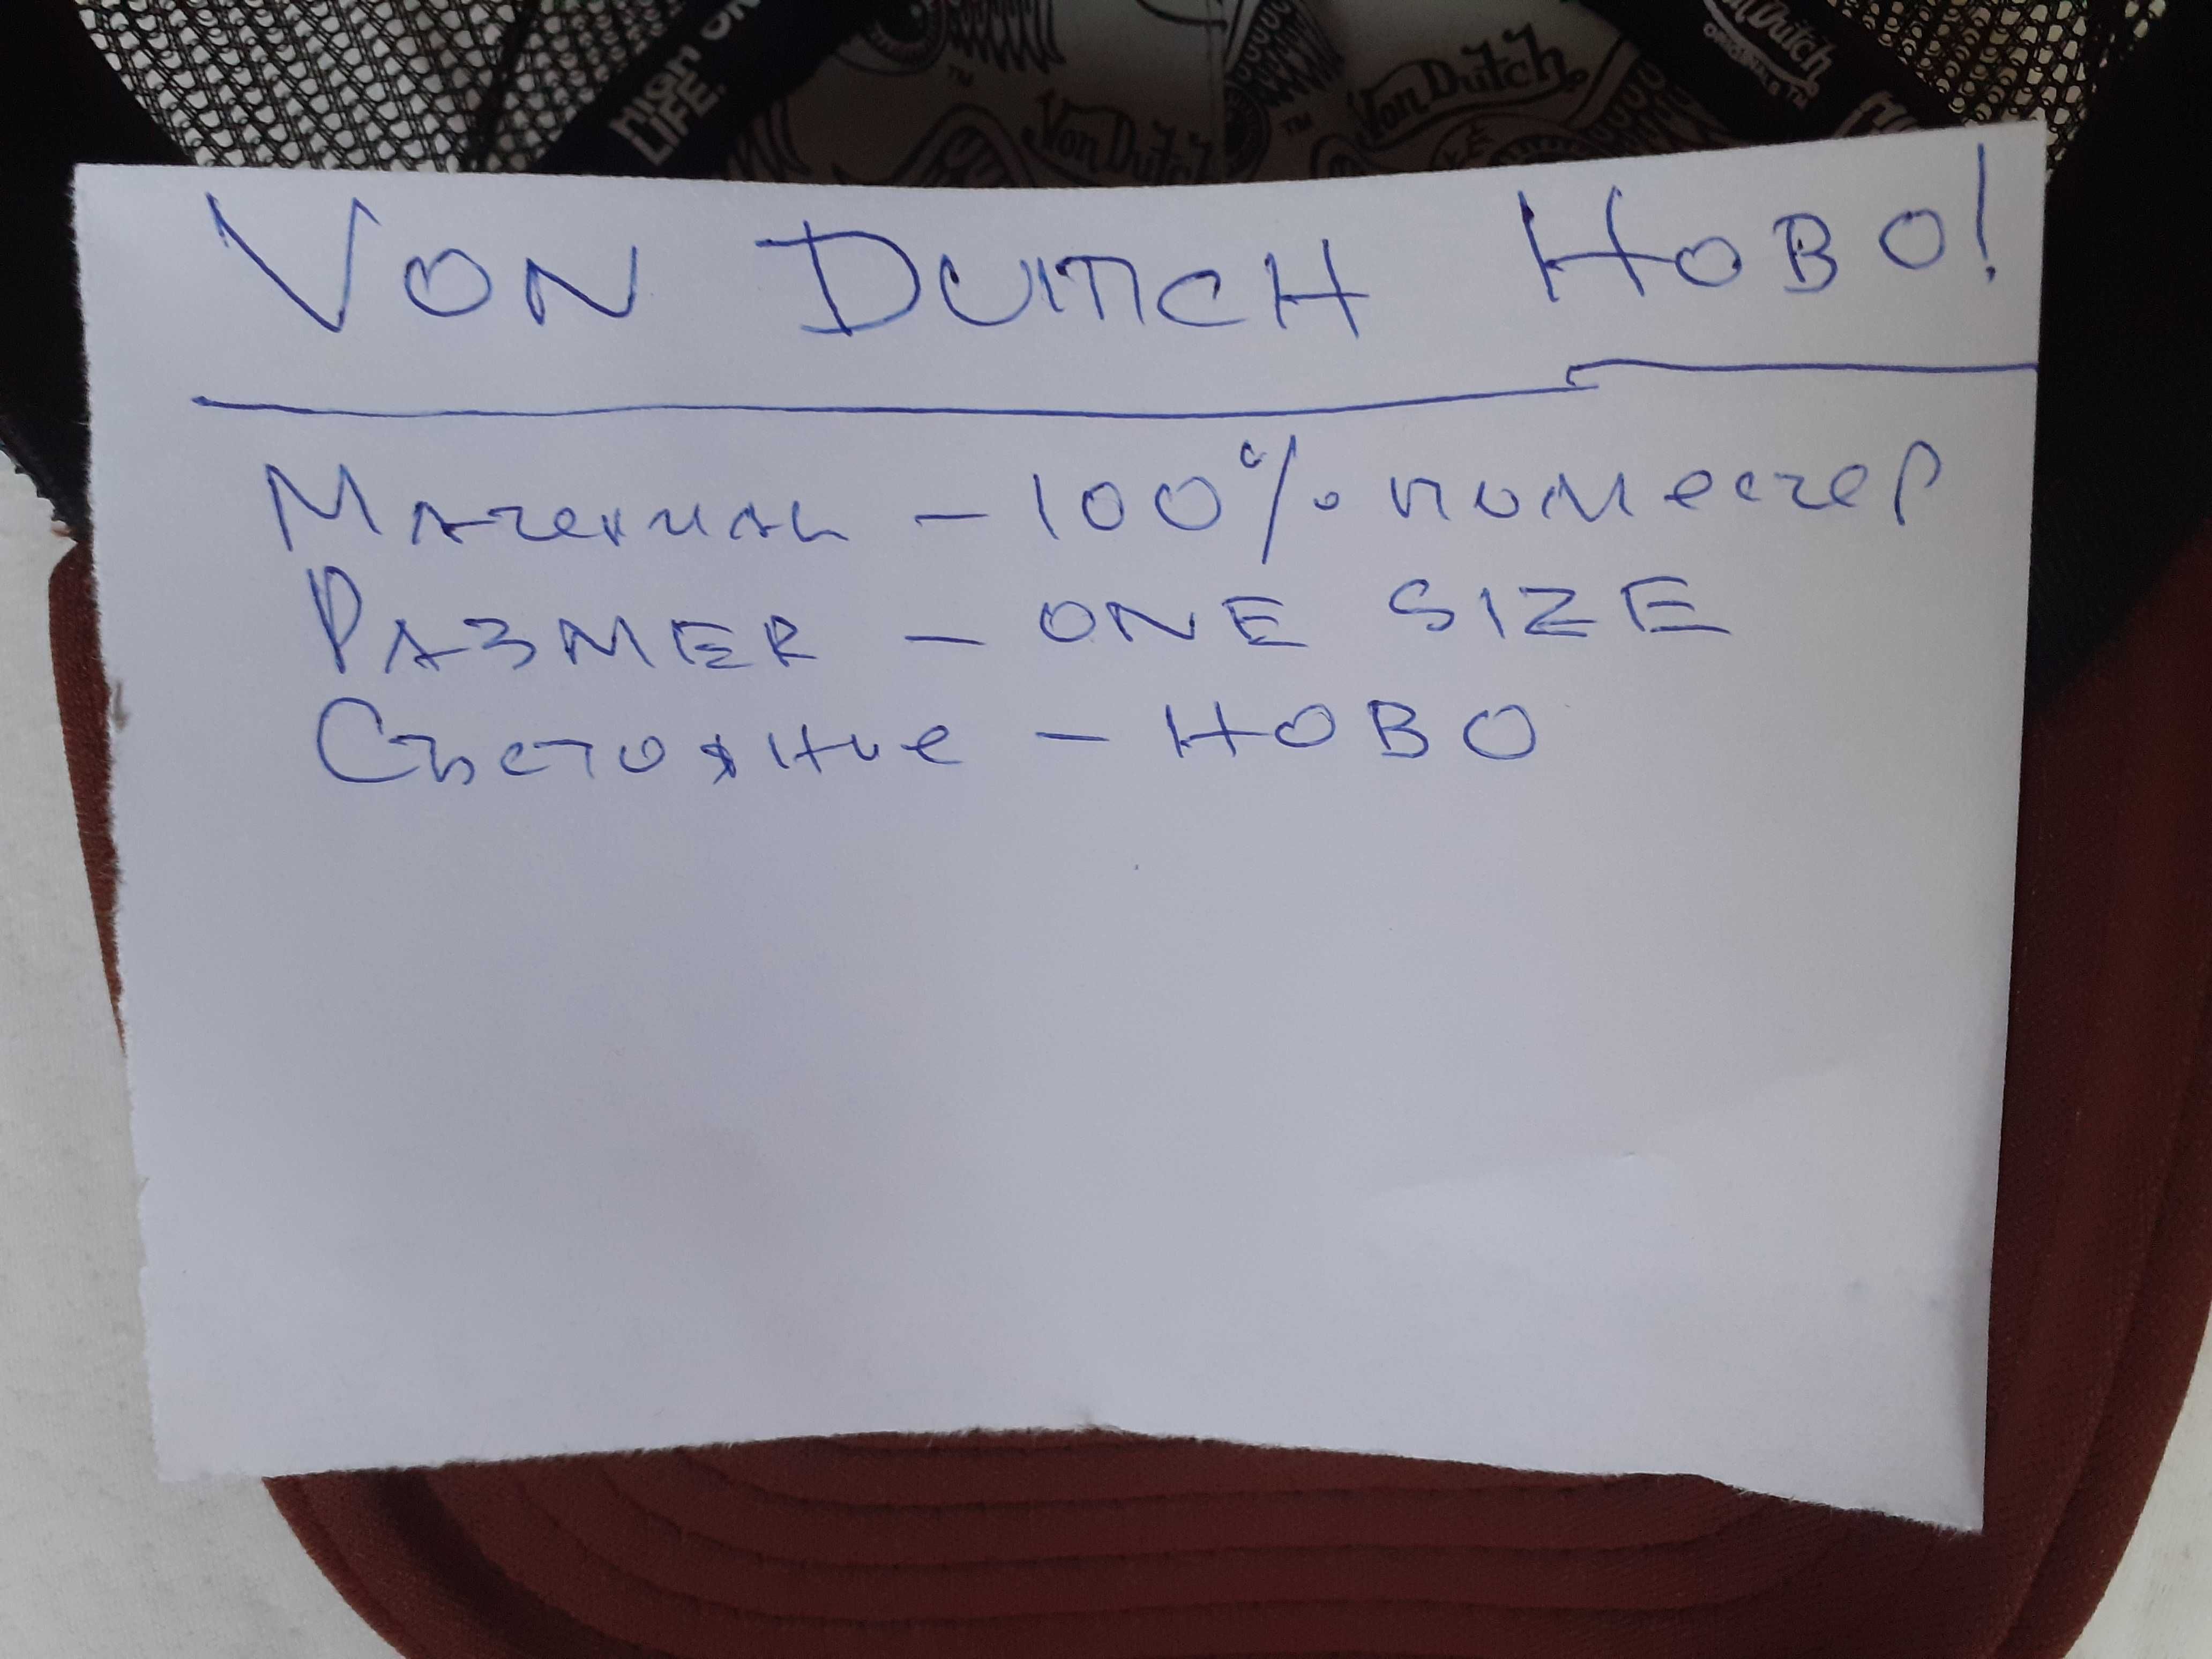 HIGH ON
LIFE.
TM
Von Dutch
TM
Von Dutch
Von Dutch
ORIGINALS TM
VON DUTCH НОВО!
Материал - 100% полиестер
РАЗМЕR - ONE SIZE
Състояние - НОВО